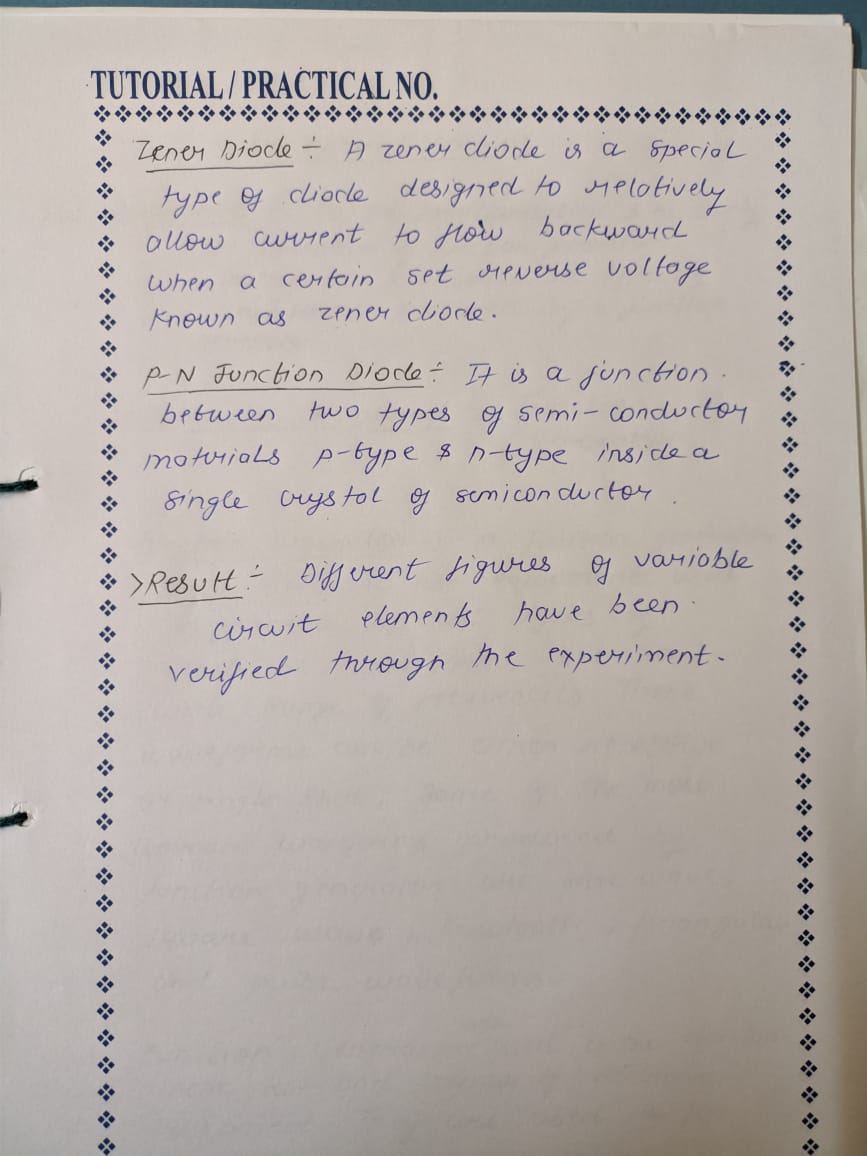 TUTORIAL / PRACTICAL NO.
Zener Diode ÷ A zener diode is a special
type of diode designed to relatively
allow current to flow backward
when a certain set reverse voltage
known as zener diode.
P-N Junction Diode ÷ It is a junction
between two types of semi-conductor
materials p-type & n-type inside a
single crystal of semiconductor.
>Result ÷ Different figures of variable
circuit elements have been
verified through the experiment.